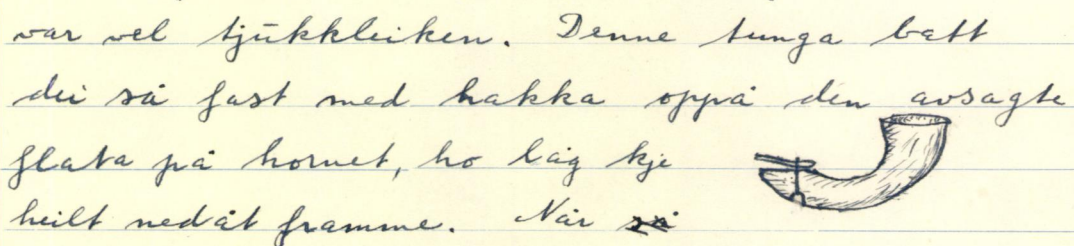 var vel tjukkleiken. Denne tunga batt
dei så fast med hakka oppå den avsagte
flata på hornet, ho låg kje
heilt nedåt framme. Når så